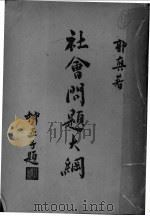 郭真著
社會問題大綱